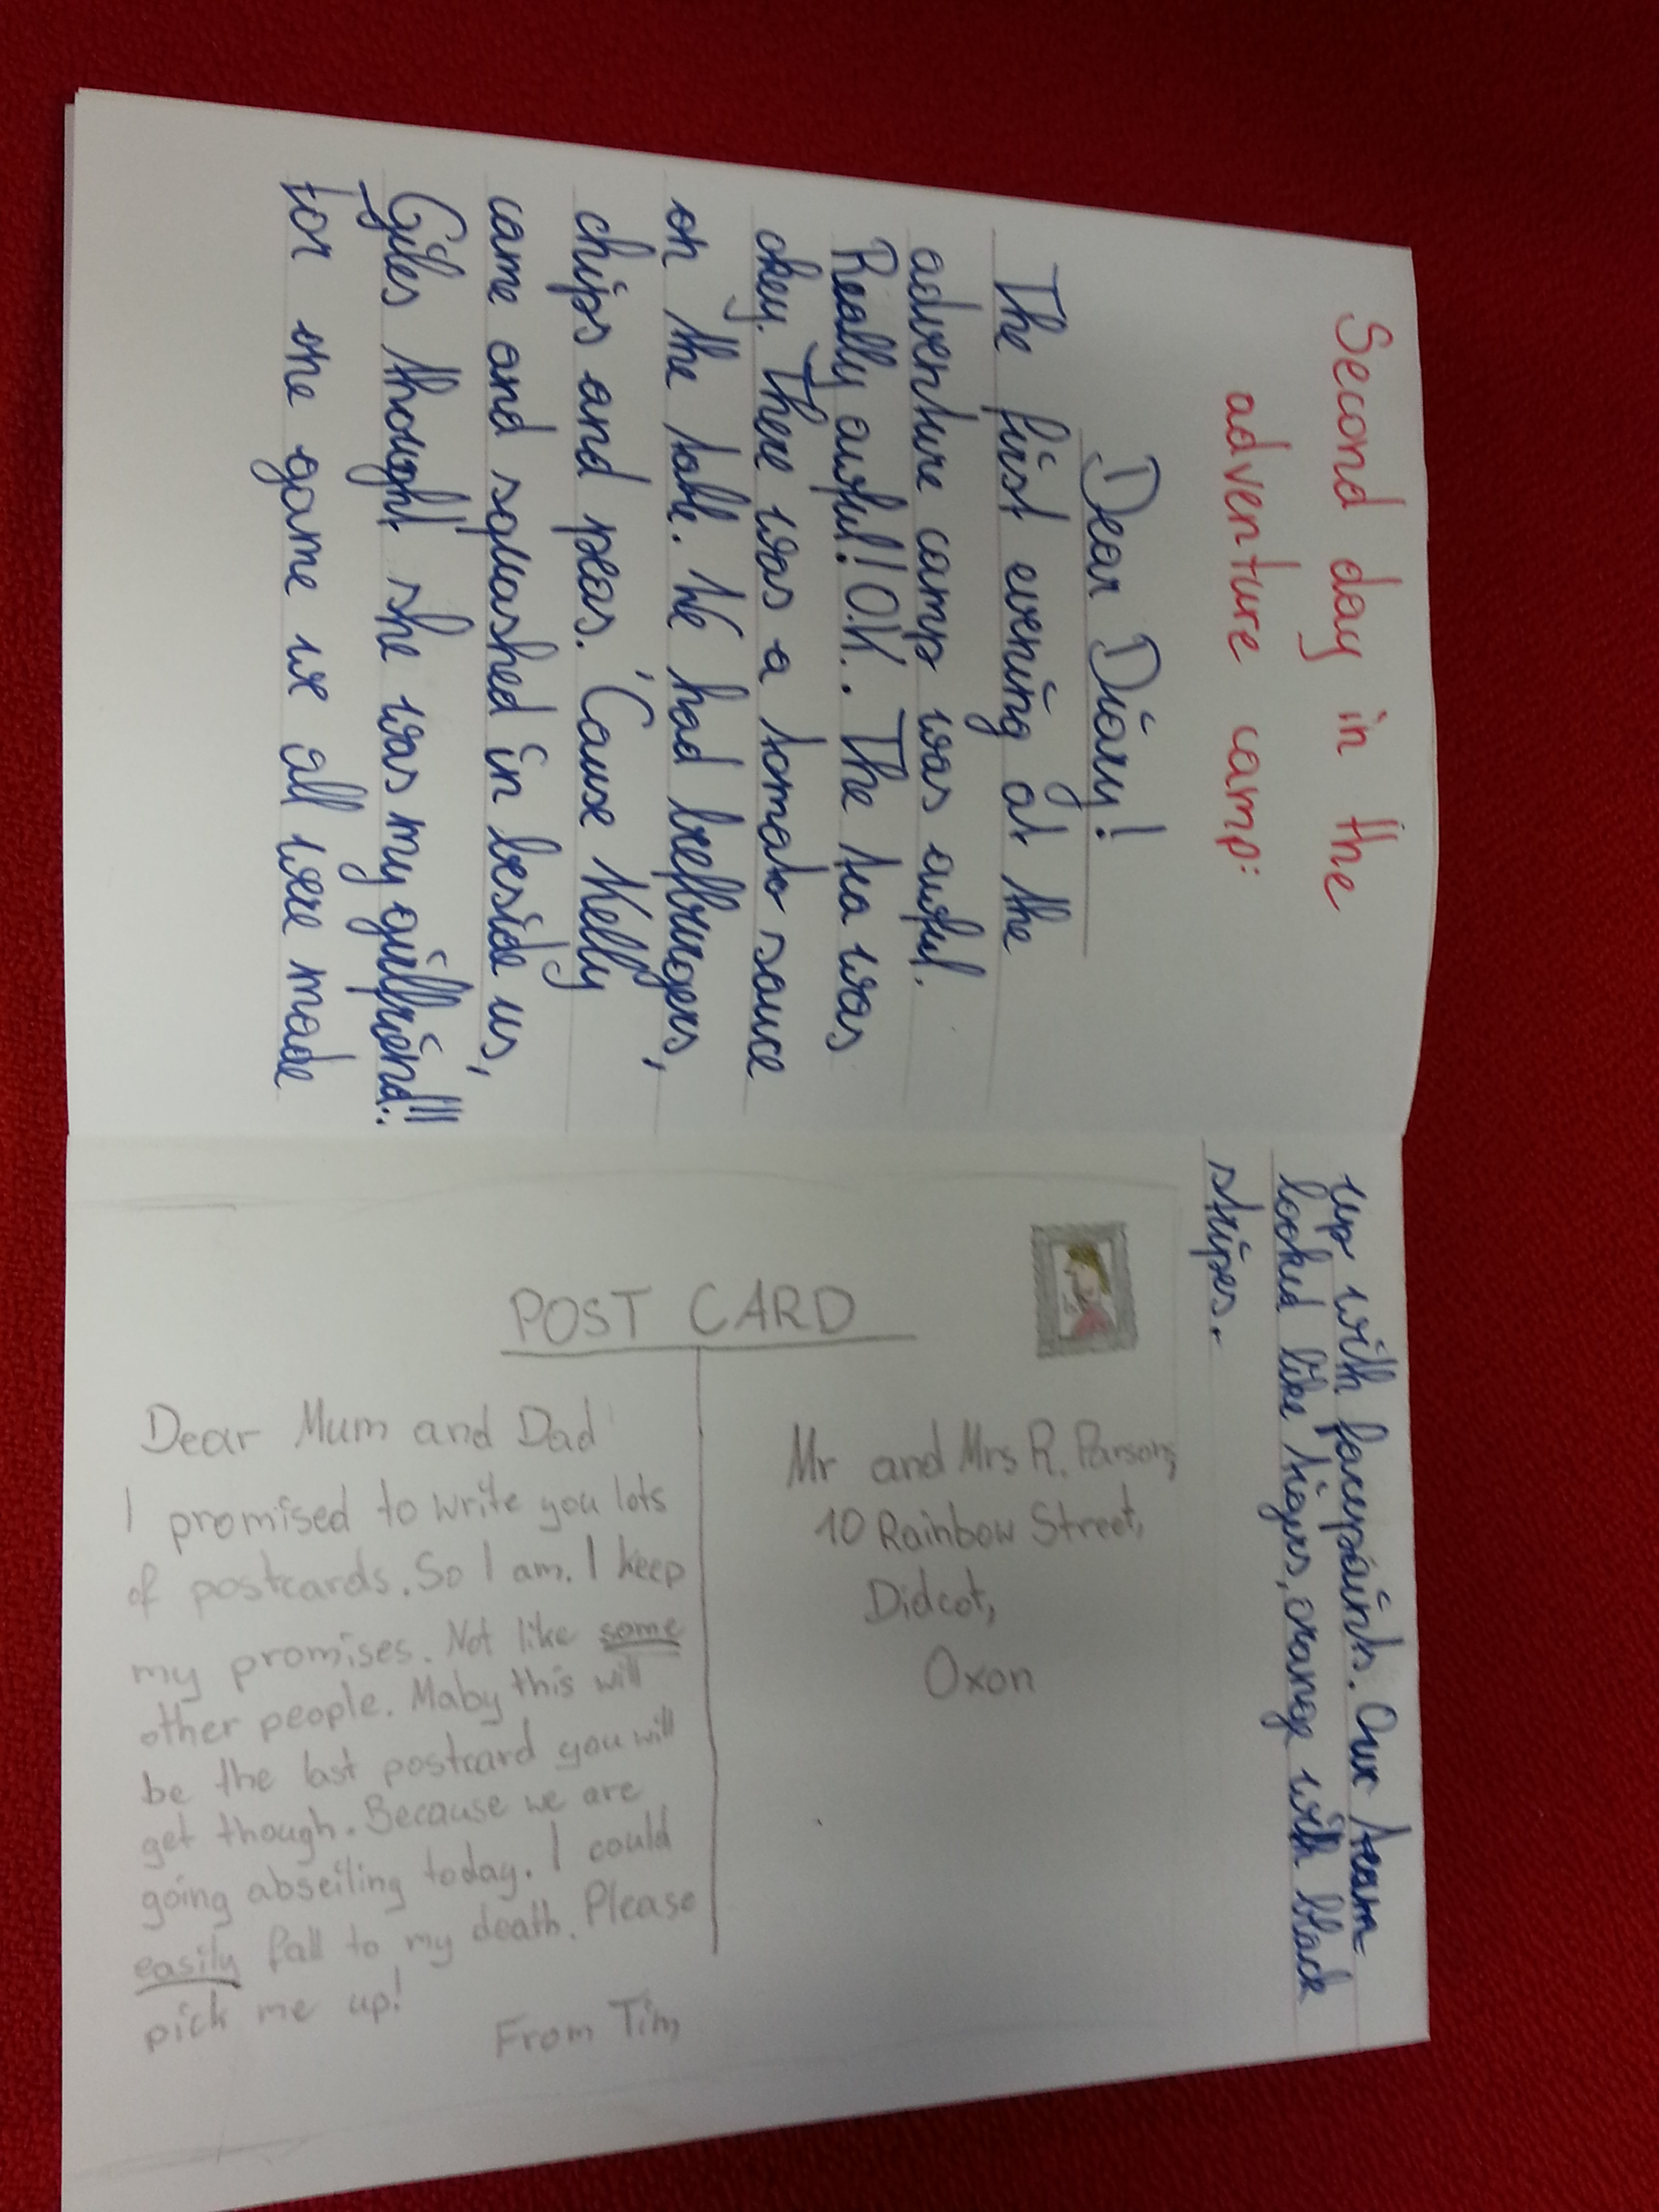 Second day in the
adventure camp:
Dear Diary!
The first evening at the
adventure camp was awful.
Really awful!! O.K.. The tea was
okey. There was a tomato sauce
on the table. We had beefburgers,
chips and peas. 'Cause Kelly
came and squashed in beside us,
Giles thought she was my girlfriend!!!
For one game we all were made
up with facepaints. Our team
looked like tigers, orange with black
stripes.
POST CARD
Dear Mum and Dad
I promised to write you lots
of postcards. So I am. I keep
my promises. Not like some
other people. Maby this will
be the last postcard you will
get though. Because we are
going abseiling today. I could
easily fall to my death. Please
pick me up!
From Tim
Mr and Mrs R. Parsons,
10 Rainbow Street,
Didcot,
Oxon